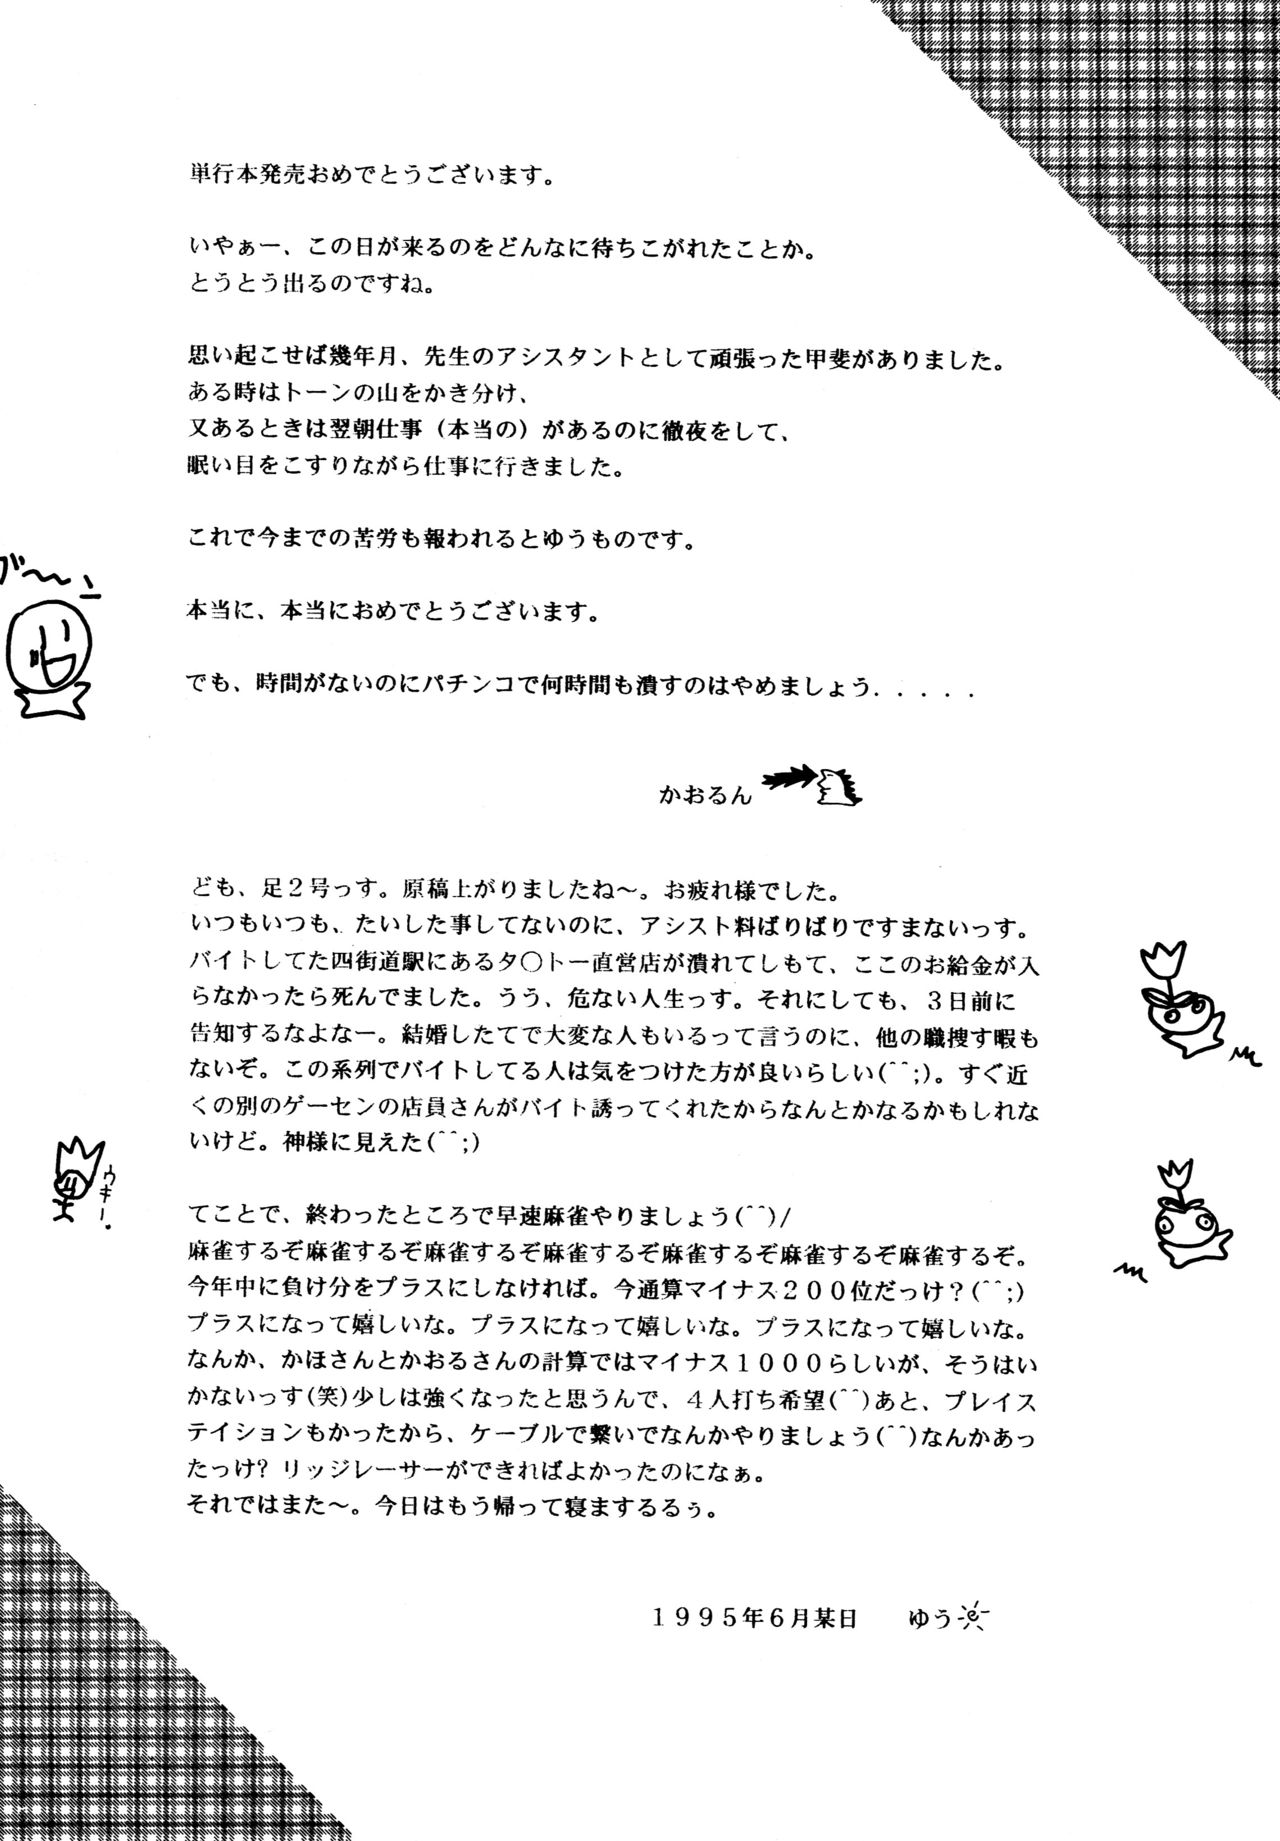 単行本発売おめでとうございます。
いやぁー、この日が来るのをどんなに待ちこがれたことか。
とうとう出るのですね。
思い起こせば幾年月、先生のアシスタントとして頑張った甲斐がありました。
ある時はトーンの山をかき分け、
又あるときは翌朝仕事（本当の）があるのに徹夜をして、
眠い目をこすりながら仕事に行きました。
これで今までの苦労も報われるとゆうものです。
グ～ン
本当に、本当におめでとうございます。
でも、時間がないのにパチンコで何時間も潰すのはやめましょう．．．．．
かおるん
ども、足２号っす。原稿上がりましたね～。お疲れ様でした。
いつもいつも、たいした事してないのに、アシスト料ばりばりですまないっす。
バイトしてた四街道駅にあるタ〇トー直営店が潰れてしもて、ここのお給金が入
らなかったら死んでました。うう、危ない人生っす。それにしても、３日前に
告知するなよなー。結婚したてで大変な人もいるって言うのに、他の職捜す暇も
ないぞ。この系列でバイトしてる人は気をつけた方が良いらしい(^^;)。すぐ近
くの別のゲーセンの店員さんがバイト誘ってくれたからなんとかなるかもしれな
いけど。神様に見えた(^^;)
ウキー.
てことで、終わったところで早速麻雀やりましょう(^^)/
麻雀するぞ麻雀するぞ麻雀するぞ麻雀するぞ麻雀するぞ麻雀するぞ麻雀するぞ。
今年中に負け分をプラスにしなければ。今通算マイナス２００位だっけ？(^^;)
プラスになって嬉しいな。プラスになって嬉しいな。プラスになって嬉しいな。
なんか、かほさんとかおるさんの計算ではマイナス１０００らしいが、そうはい
かないっす(笑)少しは強くなったと思うんで、４人打ち希望(^^)あと、プレイス
テイションもかったから、ケーブルで繋いでなんかやりましょう(^^)なんかあっ
たっけ? リッジレーサーができればよかったのになぁ。
それではまた～。今日はもう帰って寝まするるぅ。
１９９５年６月某日　　ゆう